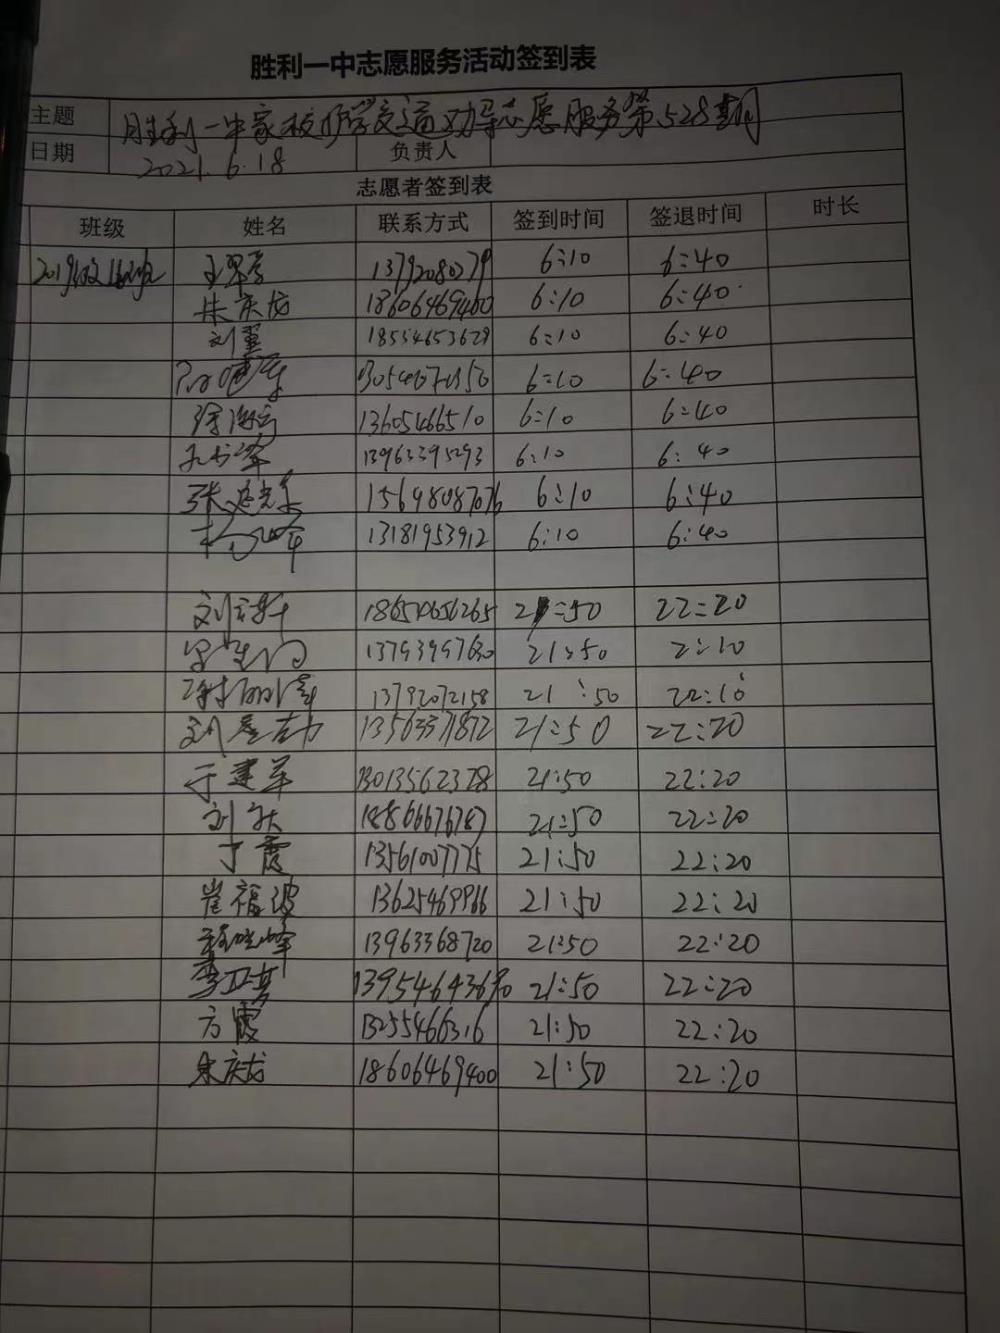 胜利一中志愿服务活动签到表
主题 胜利一中家校护学交通劝导志愿服务第528期
日期 2021.6.18 负责人
志愿者签到表
班级 姓名 联系方式 签到时间 签退时间 时长
2019级 6:10 6:40
朱庆龙 18606469400 6:10 6:40
刘翼 18554653629 6:10 6:40
6:10 6:40
徐 13605466510 6:10 6:40
13963395293 6:10 6:40
张 15698087076 6:10 6:40
杨 13181953912 6:10 6:40
刘 18654656265 21:50 22:20
13793957630 21:50 22:10
13792072158 21:50 22:10
刘 13563371872 21:50 22:20
于建军 13013562378 21:50 22:20
刘 18866676787 21:50 22:20
丁霞 13561007775 21:50 22:20
崔福波 21:50 22:20
程晓峰 13963368720 21:50 22:20
李 21:50 22:20
方霞 13255466316 21:50 22:20
朱庆龙 18606469400 21:50 22:20